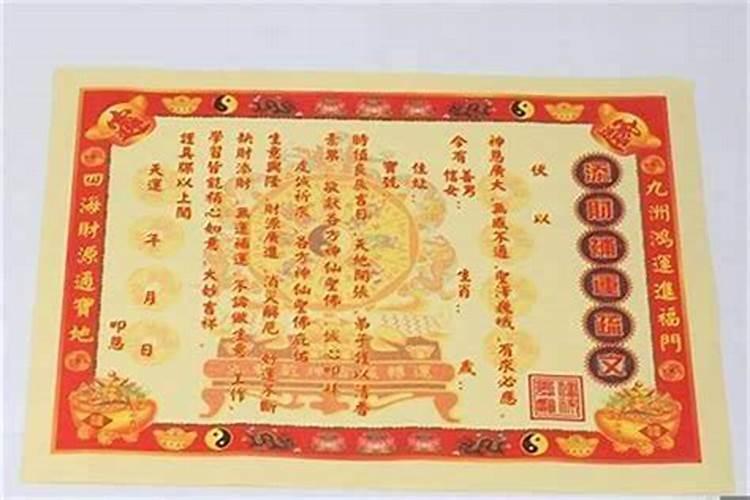 九洲鴻運進福門
添財補運疏文
伏以
神恩廣大 無感不通 聖澤巍峨 有求必應
今有善男信女： 生肖： 歲：
住址：
寶號
時值良辰吉日 天地開張 弟子僅以清香
素果 敬献各方神仙聖佛 誠心叩拜
虔誠祈求 各方神仙聖佛庇佑
生意興隆 財源廣進 消災解厄 好運不断
缺財添財 無運補運 不論做生意、工作、
學習皆能稱心如意 大妙吉祥
謹具疏以上聞
天運 年 月 日 叩懇
四海財源通寶地